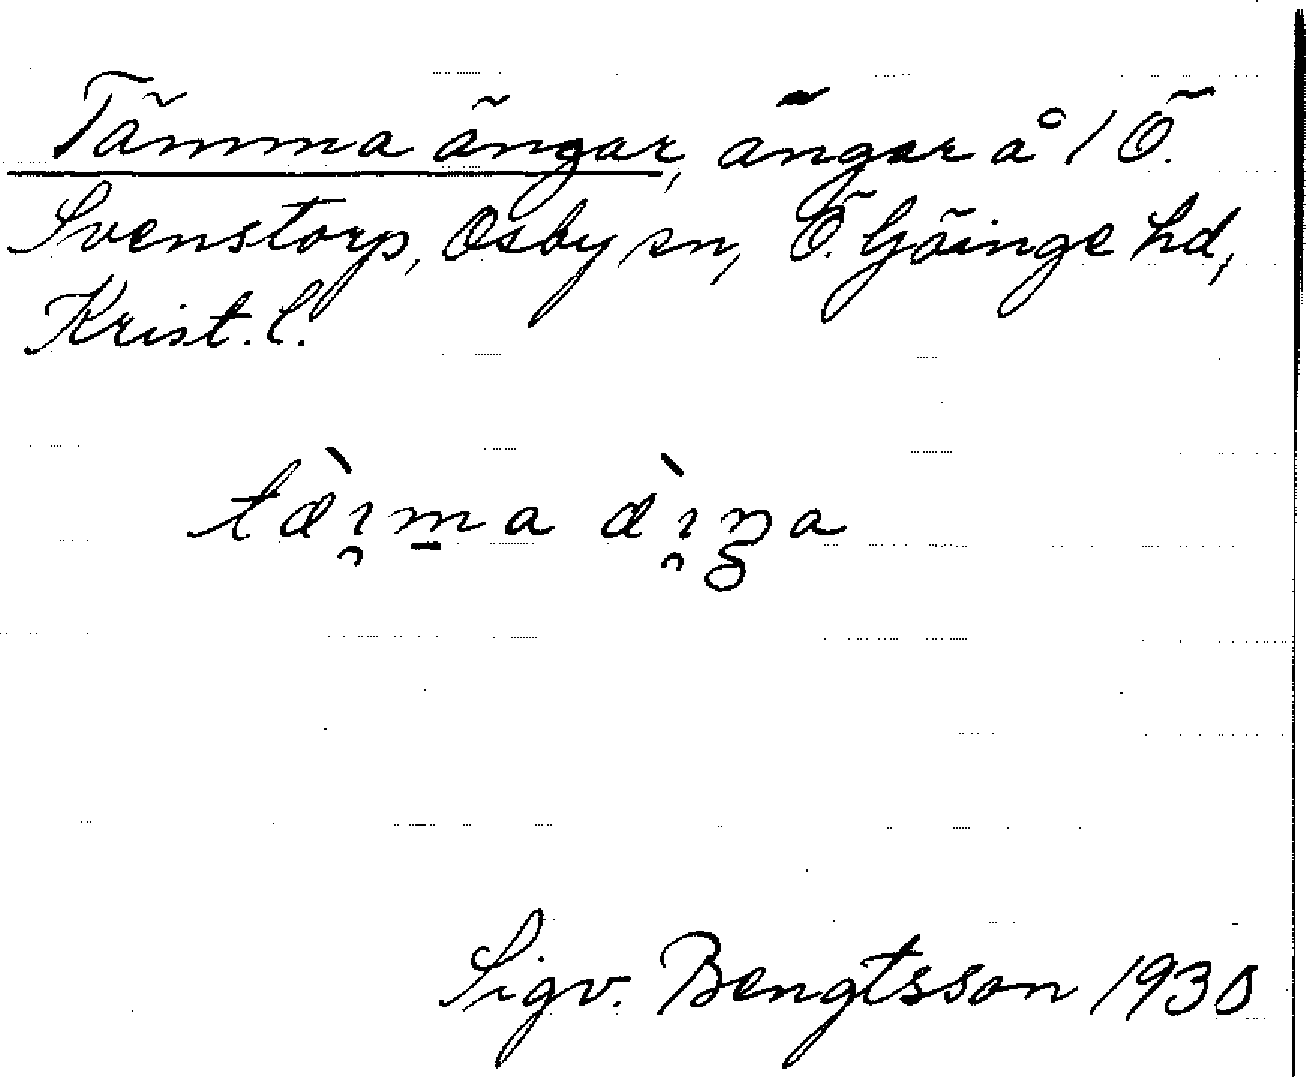 Tämma ängar, ängar å 1 Ö.
Svenstorp, Osby sn, Ö. Göinge hd,
Krist. l.
tæ̀ı̯m̲a æ̀ı̯ŋa
Sigv. Bengtsson 1930